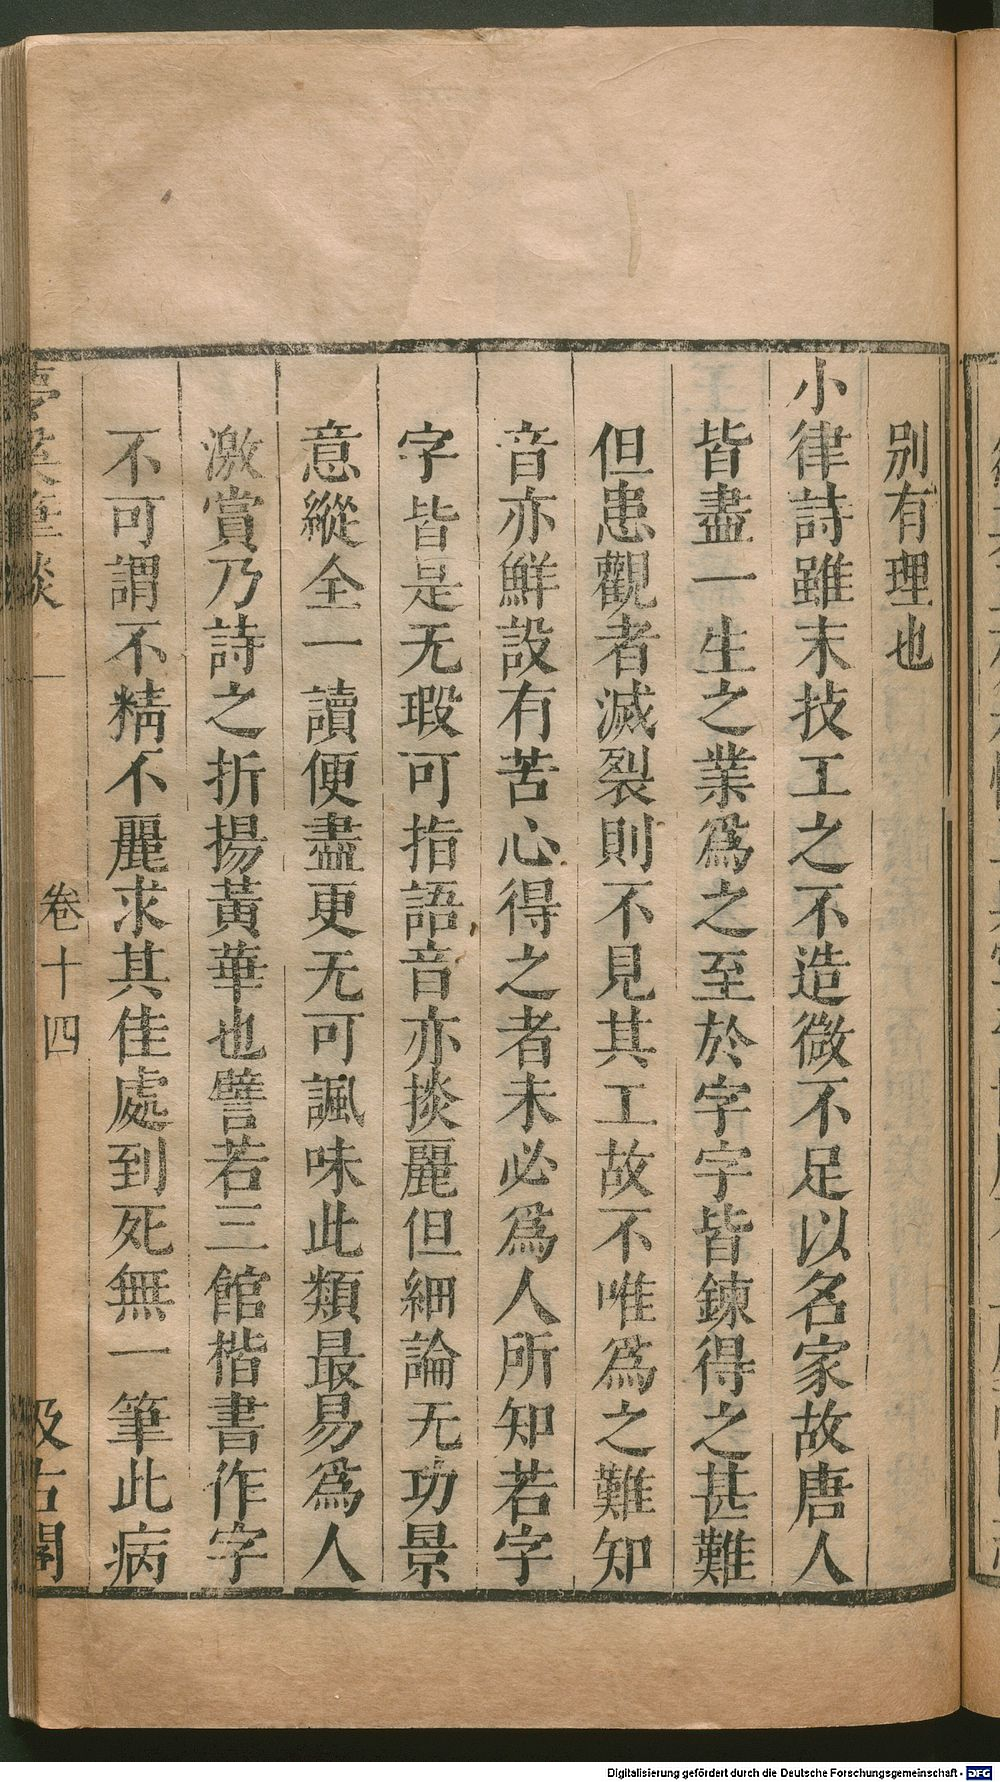 别有理也
小律詩雖末技工之不造微不足以名家故唐人
皆盡一生之業爲之至於字字皆鍊得之甚難
但患觀者滅裂則不見其工故不唯爲之難知
音亦鮮設有苦心得之者未必爲人所知若字
字皆是无瑕可指語音亦掞麗但細論无功景
意縱全一讀便盡更无可諷味此類最易爲人
激賞乃詩之折揚黃華也譬若三館楷書作字
不可謂不精不麗求其佳處到死無一筆此病
夢溪筆談 卷十四 汲古閣
Digitalisierung gefördert durch die Deutsche Forschungsgemeinschaft - DFG